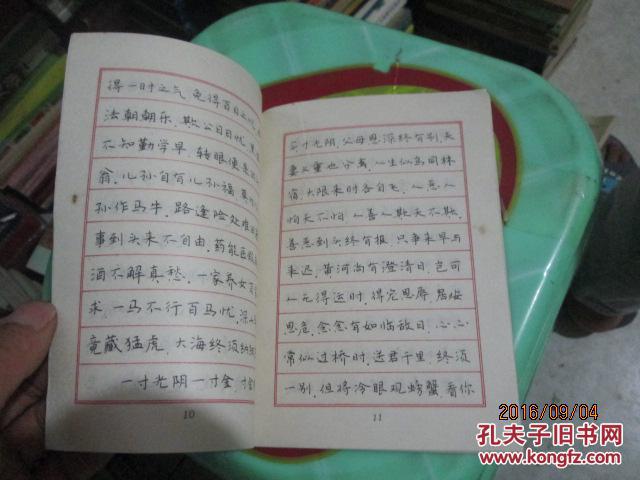 得一时之气 免得百日之忧
法朝朝乐, 欺公日日忧
不知勤学早, 转眼便是
翁, 儿孙自有儿孙福 莫
孙作马牛, 路逢险处难
事到头来不自由, 药能医
酒不解真愁, 一家养女百
求, 一马不行百马忧, 深山
竟藏猛虎, 大海终须纳细
一寸光阴一寸金, 寸金
10
买寸光阴, 父母恩深终有别, 夫
妻义重也分离, 人生似鸟同林
宿, 大限来时各自飞, 人恶人
怕天不怕 人善人欺天不欺,
善恶到头终有报, 只争来早与
来迟, 黄河尚有澄清日, 岂可
人无得运时, 得宠思辱, 居安
思危, 念念有如临敌日, 心心
常似过桥时, 送君千里, 终须
一别, 但将冷眼观螃蟹, 看你
11
2016/09/04
孔夫子旧书网
www.kongfz.com